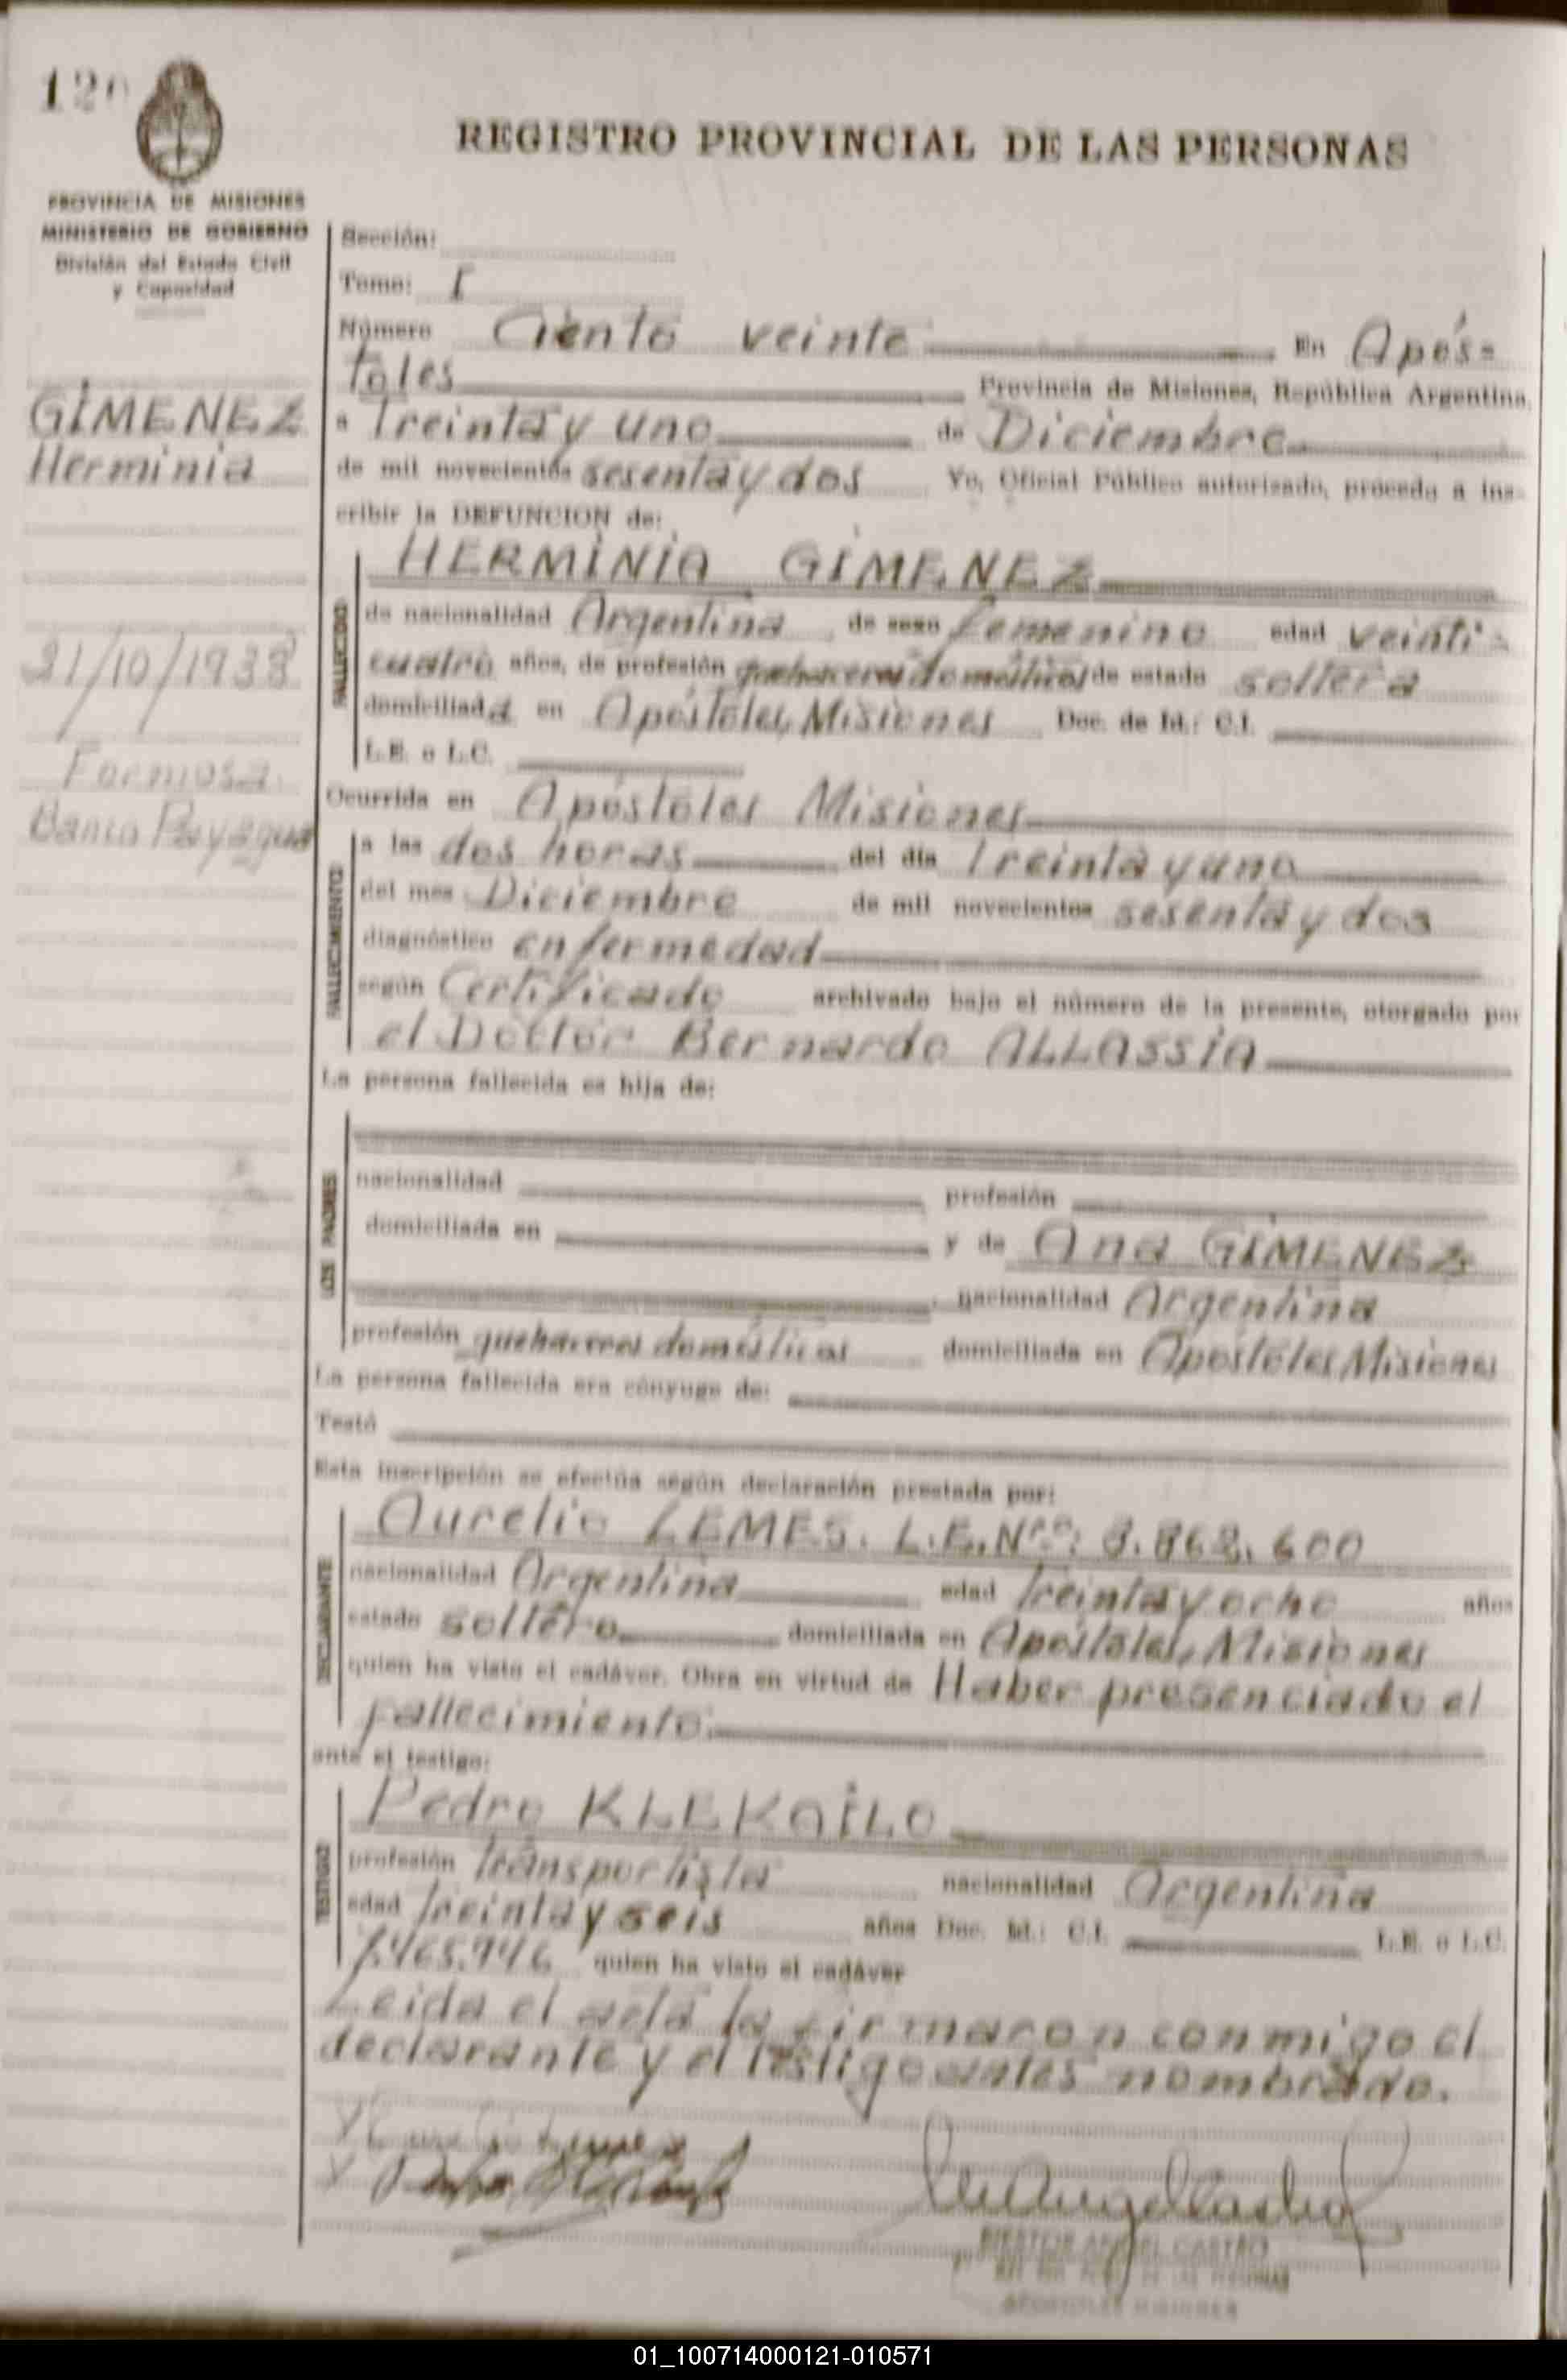 120
REGISTRO PROVINCIAL DE LAS PERSONAS
PROVINCIA DE MISIONES
MINISTERIO DE GOBIERNO
División del Estado Civil
y Capacidad
GIMENEZ
Herminia
21/10/1938
Formosa
Sección:
Tomo: I
Número Ciento veinte En Após=
toles Provincia de Misiones, República Argentina,
a Treinta y uno de Diciembre
de mil novecientos sesenta y dos Yo, Oficial Público autorizado, procedo a ins-
cribir la DEFUNCION de:
FALLECIDO
HERMINIA GIMENEZ
de nacionalidad Argentina de sexo femenino edad veinti=
cuatro años, de profesión quehaceres domésticos de estado soltera
domiciliada en Apóstoles, Misiones Doc. de Id.: C.I.
L.E. o L.C.
Ocurrida en Apóstoles Misiones
FALLECIMIENTO
a las dos horas del día Treinta y uno
del mes Diciembre de mil novecientos sesenta y dos
diagnóstico enfermedad
según Certificado archivado bajo el número de la presente, otorgado por
el Doctor Bernardo ALLASSIA
La persona fallecida es hija de:
LOS PADRES
nacionalidad profesión
domiciliada en y de Ana GIMENEZ
nacionalidad Argentina
profesión quehaceres domésticos domiciliada en Apóstoles Misiones
La persona fallecida era cónyuge de:
Testó
Esta inscripción se efectúa según declaración prestada por:
DECLARANTE
Aurelio LEMES. L.E.Nro: 3.862.600
nacionalidad Argentina edad Treinta y ocho años
estado soltero domiciliada en Apóstoles, Misiones
quien ha visto el cadáver. Obra en virtud de Haber presenciado el
fallecimiento
ante el testigo:
TESTIGO
Pedro KLEKAILO
profesión transportista nacionalidad Argentina
edad Treinta y seis años Doc. Id.: C.I. L.E. o L.C.
7.465.946 quien ha visto el cadáver
Leida el acta la firmaron conmigo el
declarante y el testigo antes nombrado.
ANGEL CASTRO
APOSTOLES MISIONES
01_100714000121-010571